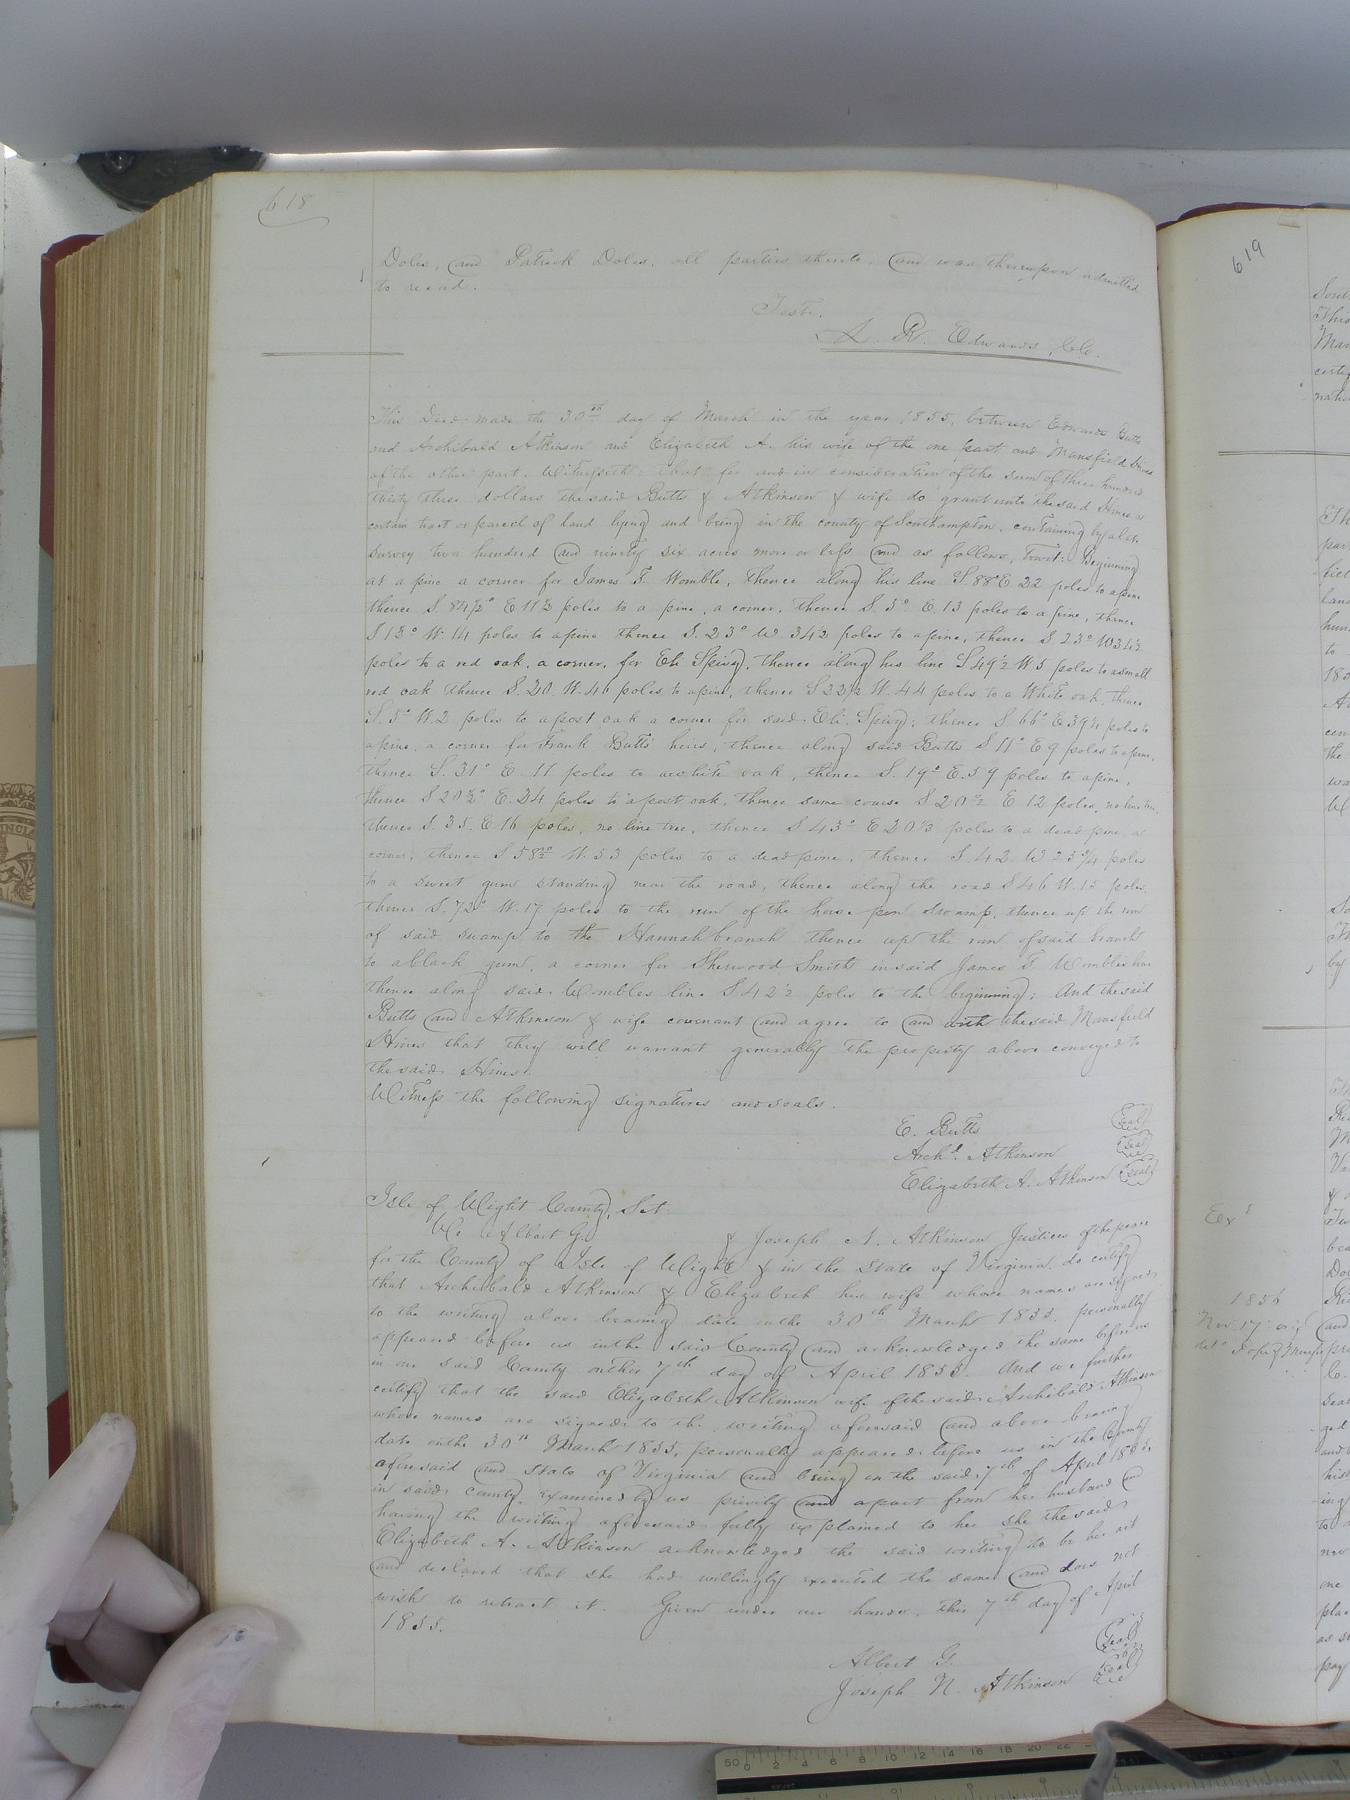 618
Doles, and Patrick Doles, all parties thereto, and was thereupon admitted
to record.
Teste.
L. R. Edwards, Clk.
This Deed made the 30th day of March in the year 1855, between Edwards Butts
and Archibald Atkinson and Elizabeth A. his wife of the one part and Mansfield Hines
of the other part. Witnesseth: that for and in consideration of the sum of three hundred
thirty three dollars the said Butts & Atkinson & wife do grant unto the said Hines a
certain tract or parcel of land lying and being in the county of Southampton, containing by a late
survey two hundred and ninety six acres more or less and as follows, Towit: Beginning
at a pine a corner for James T. Womble, thence along his line S. 88° E 22 poles to a pine
thence S. 84½° E 11½ poles to a pine, a corner, thence S. 5° E. 13 poles to a pine, thence
S 13° W. 14 poles to a pine thence S. 23° W 34½ poles to a pine, thence S 23° W 34½
poles to a red oak, a corner, for Eli Spivy, thence along his line S 49½ W. 5 poles to a small
red oak thence S. 30. W. 46 poles to a pine, thence S 22½ W. 44 poles to a White oak, thence
S. 5° W. 2 poles to a post oak a corner for said Eli Spivy; thence S 66° E 39¼ poles to
a pine, a corner for Frank Butts' heirs, thence along said Butts S 11° E 9 poles to a pine,
thence S. 31° E. 11 poles to a white oak, thence S. 19° E. 59 poles to a pine,
thence S 20½° E. 34 poles to a post oak, thence same course S 20½ E 12 poles, no line tree,
thence S. 35. E 16 poles, no line tree, thence S 43° E 20½ poles to a dead pine, a
corner, thence S 58½° W. 53 poles to a dead pine, thence S. 42 W 23¾ poles
to a sweet gum standing near the road, thence along the road S 46 W. 15 poles,
thence S. 72° W. 17 poles to the run of the horse pen swamp, thence up the run
of said swamp to the Hannah branch thence up the run of said branch
to a black gum, a corner for Sherwood Smith in said James T. Wombles line
thence along said Wombles line S 42½ poles to the beginning; And the said
Butts and Atkinson & wife covenant and agree to and with the said Mansfield
Hines that they will warrant generally the property above conveyed to
the said Hines.
Witness the following signatures and seals.
E. Butts Seal
Archd. Atkinson Seal
Elizabeth A. Atkinson Seal
Isle of Wight County, Sct.
We Albert G. & Joseph N. Atkinson Justices of the peace
for the County of Isle of Wight & in the State of Virginia, do certify
that Archibald Atkinson & Elizabeth his wife whose names are signed
to the writing above bearing date on the 30th March 1855, personally
appeared before us in the said County and acknowledged the same before us
in our said County on this 7th day of April 1855. And we further
certify that the said Elizabeth Atkinson wife of the said Archibald Atkinson
whose names are signed to the writing aforesaid and above bearing
date on the 30th March 1855, personally appeared before us in the County
aforesaid and State of Virginia and being on the said 7th of April 1855,
in said county, examined by us privily and apart from her husband and
having the writing aforesaid fully explained to her she the said
Elizabeth A. Atkinson acknowledged the said writing to be her act
and declared that she had willingly executed the same and does not
wish to retract it. Given under our hands, this 7th day of April
1855.
Albert G. Seal
Joseph N. Atkinson Seal
619
1856
Nov. 17
50 0 2 4 6 8 10 12 14 16 18 20 22